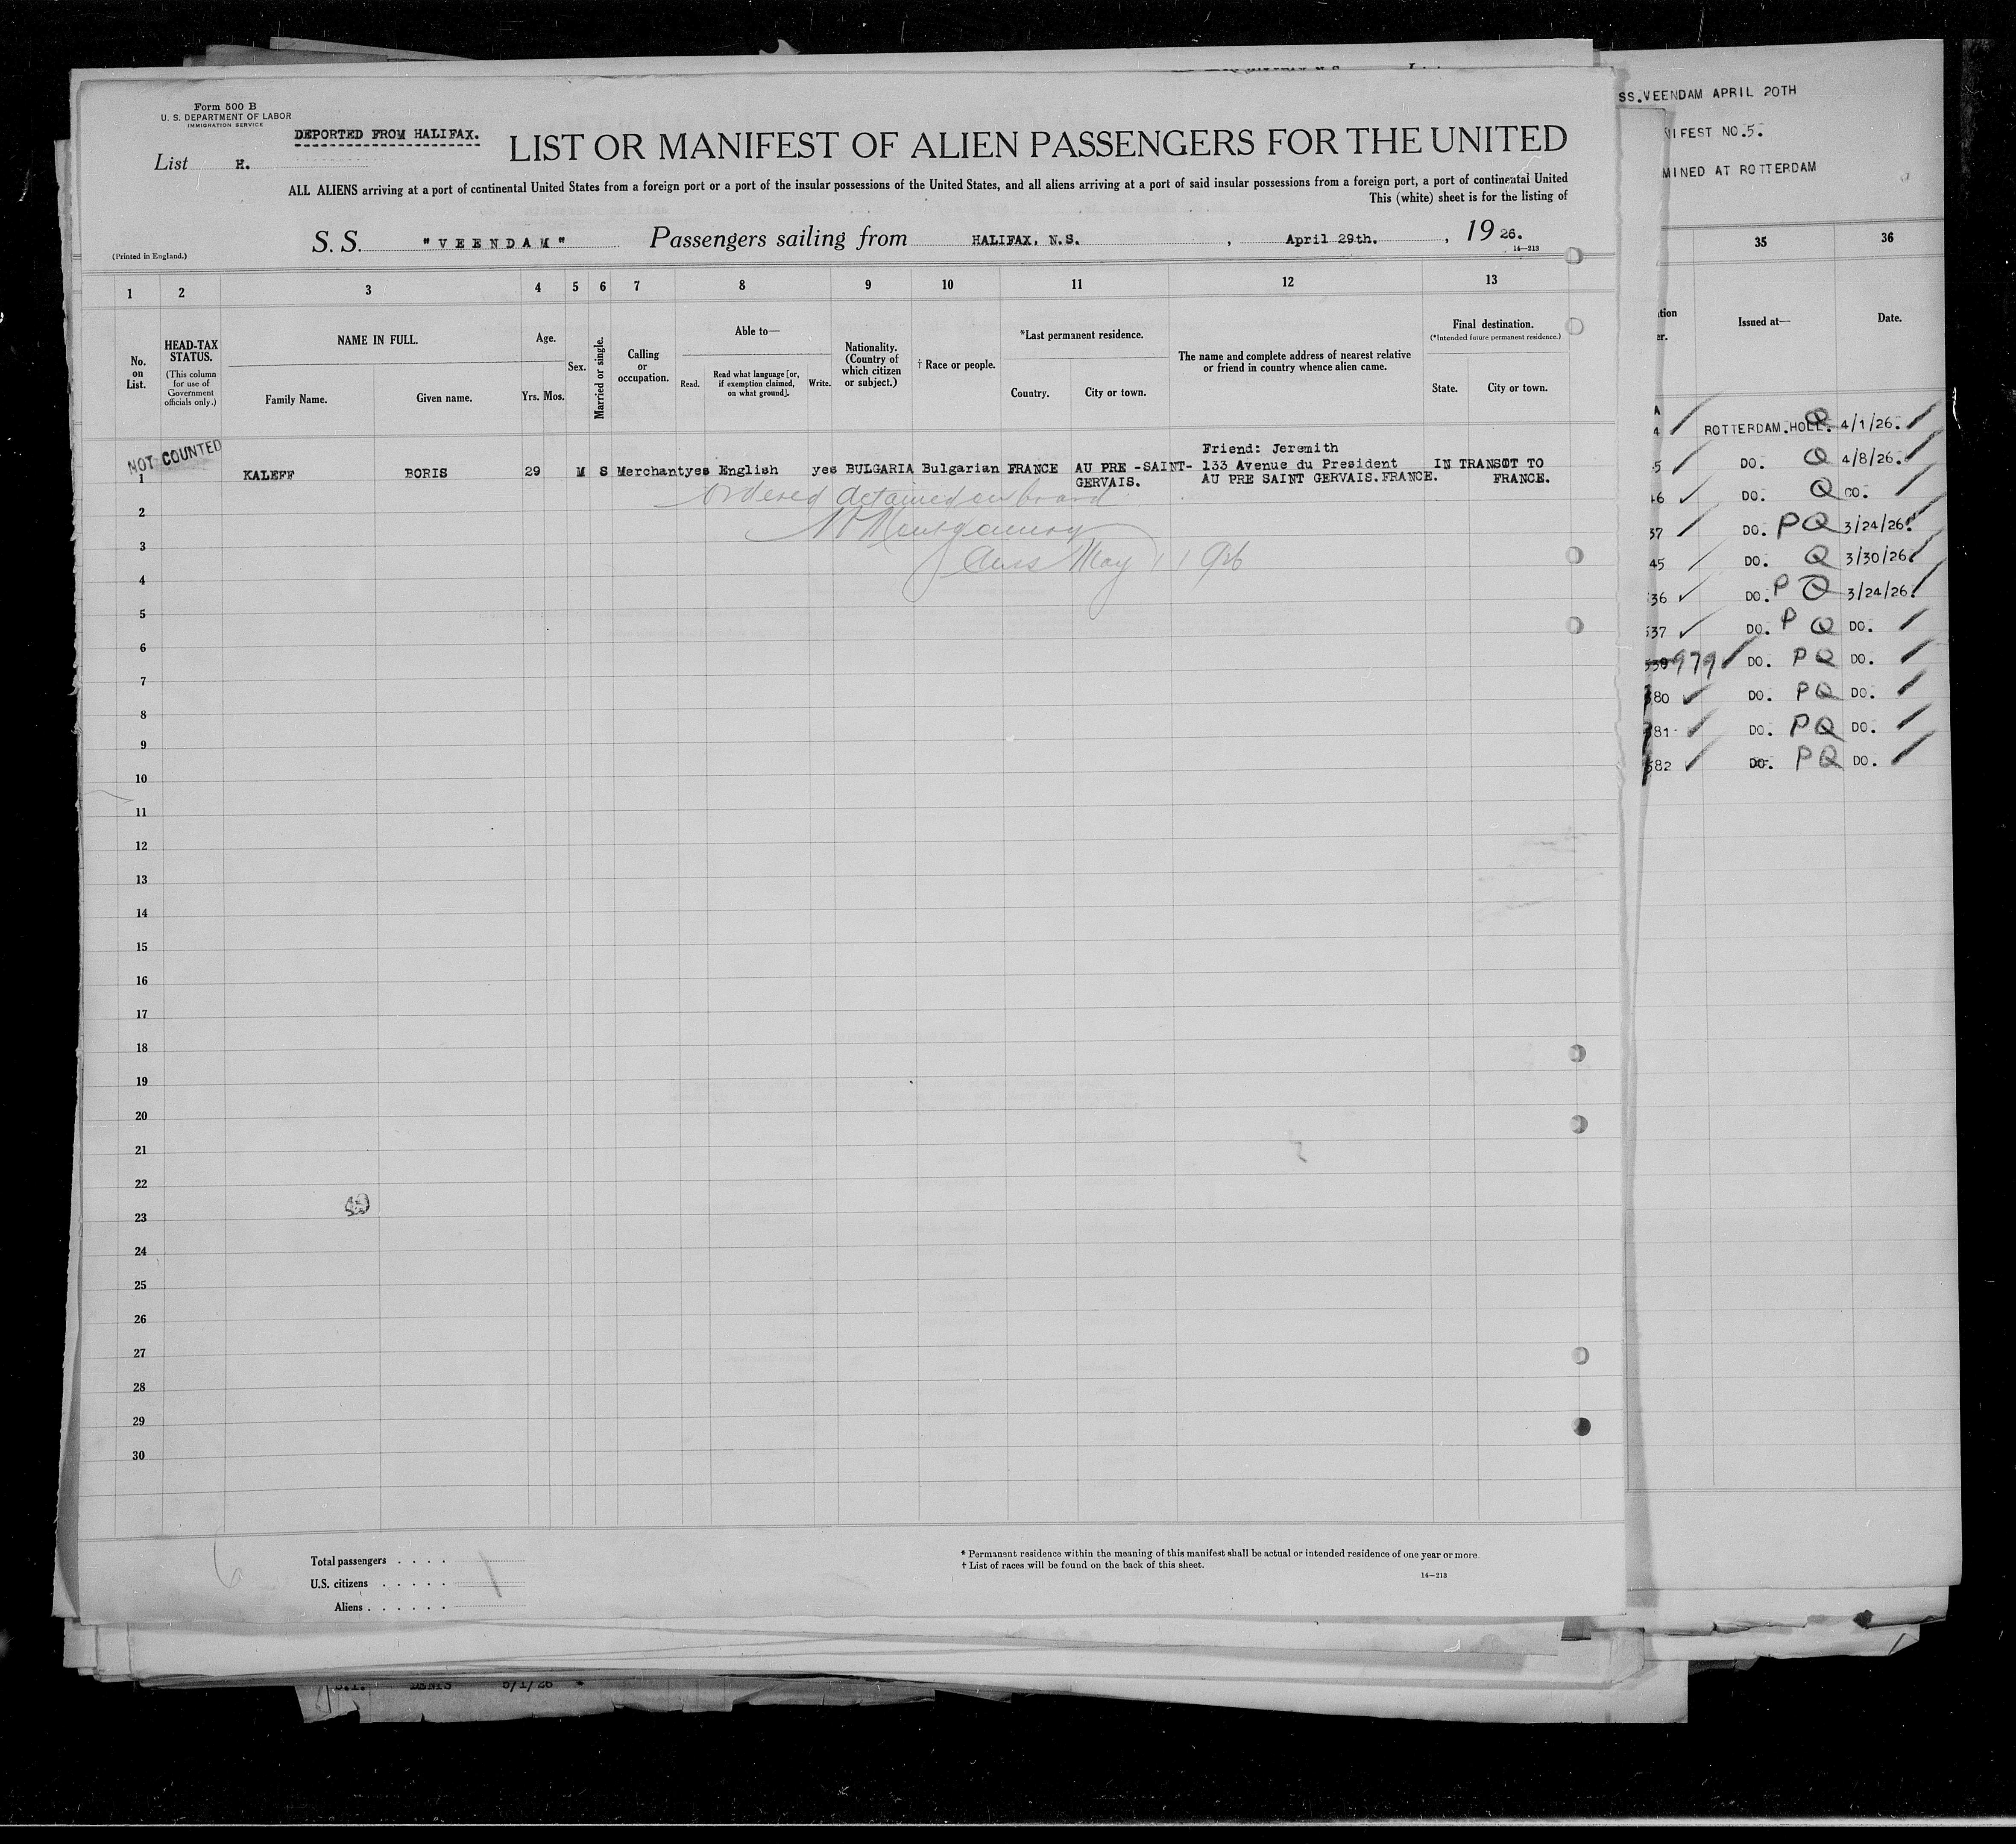 Form 500 B
U. S. DEPARTMENT OF LABOR
IMMIGRATION SERVICE
DEPORTED FROM HALIFAX.
List H.
LIST OR MANIFEST OF ALIEN PASSENGERS FOR THE UNITED
ALL ALIENS arriving at a port of continental United States from a foreign port or a port of the insular possessions of the United States, and all aliens arriving at a port of said insular possessions from a foreign port, a port of continental United
This (white) sheet is for the listing of
S. S. "VEENDAM" Passengers sailing from HALIFAX, N.S. , April 29th. , 19 26.
(Printed in England.)
14—213
1 2 3 4 5 6 7 8 9 10 11 12 13
No. on List.
HEAD-TAX STATUS.
(This column for use of Government officials only.)
NAME IN FULL.
Family Name. Given name.
Age.
Yrs. Mos.
Sex.
Married or single.
Calling or occupation.
Able to—
Read. Read what language [or, if exemption claimed, on what ground]. Write.
Nationality. (Country of which citizen or subject.)
† Race or people.
*Last permanent residence.
Country. City or town.
The name and complete address of nearest relative or friend in country whence alien came.
Final destination.
(*Intended future permanent residence.)
State. City or town.
NOT COUNTED
1 KALEFF BORIS 29 M S Merchant yes English yes BULGARIA Bulgarian FRANCE AU PRE -SAINT-GERVAIS.
Friend: Jeremith
133 Avenue du President
AU PRE SAINT GERVAIS.FRANCE.
IN TRANSOT TO
FRANCE.
Ordered detained on board
Montgomery
May 1 1926
2
3
4
5
6
7
8
9
10
11
12
13
14
15
16
17
18
19
20
21
22
23
24
25
26
27
28
29
30
6
Total passengers . . . .
U.S. citizens . . . . . 1
Aliens . . . . . .
* Permanent residence within the meaning of this manifest shall be actual or intended residence of one year or more.
† List of races will be found on the back of this sheet.
14—213
SS.VEENDAM APRIL 20TH
IFEST NO.5.
MINED AT ROTTERDAM
35 36
Issued at— Date.
ROTTERDAM.HOLL. Q 4/1/26.
5 DO. Q 4/8/26.
46 DO. Q
37 DO. PQ 3/24/26.
45 DO. Q 3/30/26.
36 DO. P Q 3/24/26.
37 DO. P Q DO.
979 DO. PQ DO.
80 DO. PQ DO.
81 DO. PQ DO.
82 DO. PQ DO.
DENIS 5/1/26